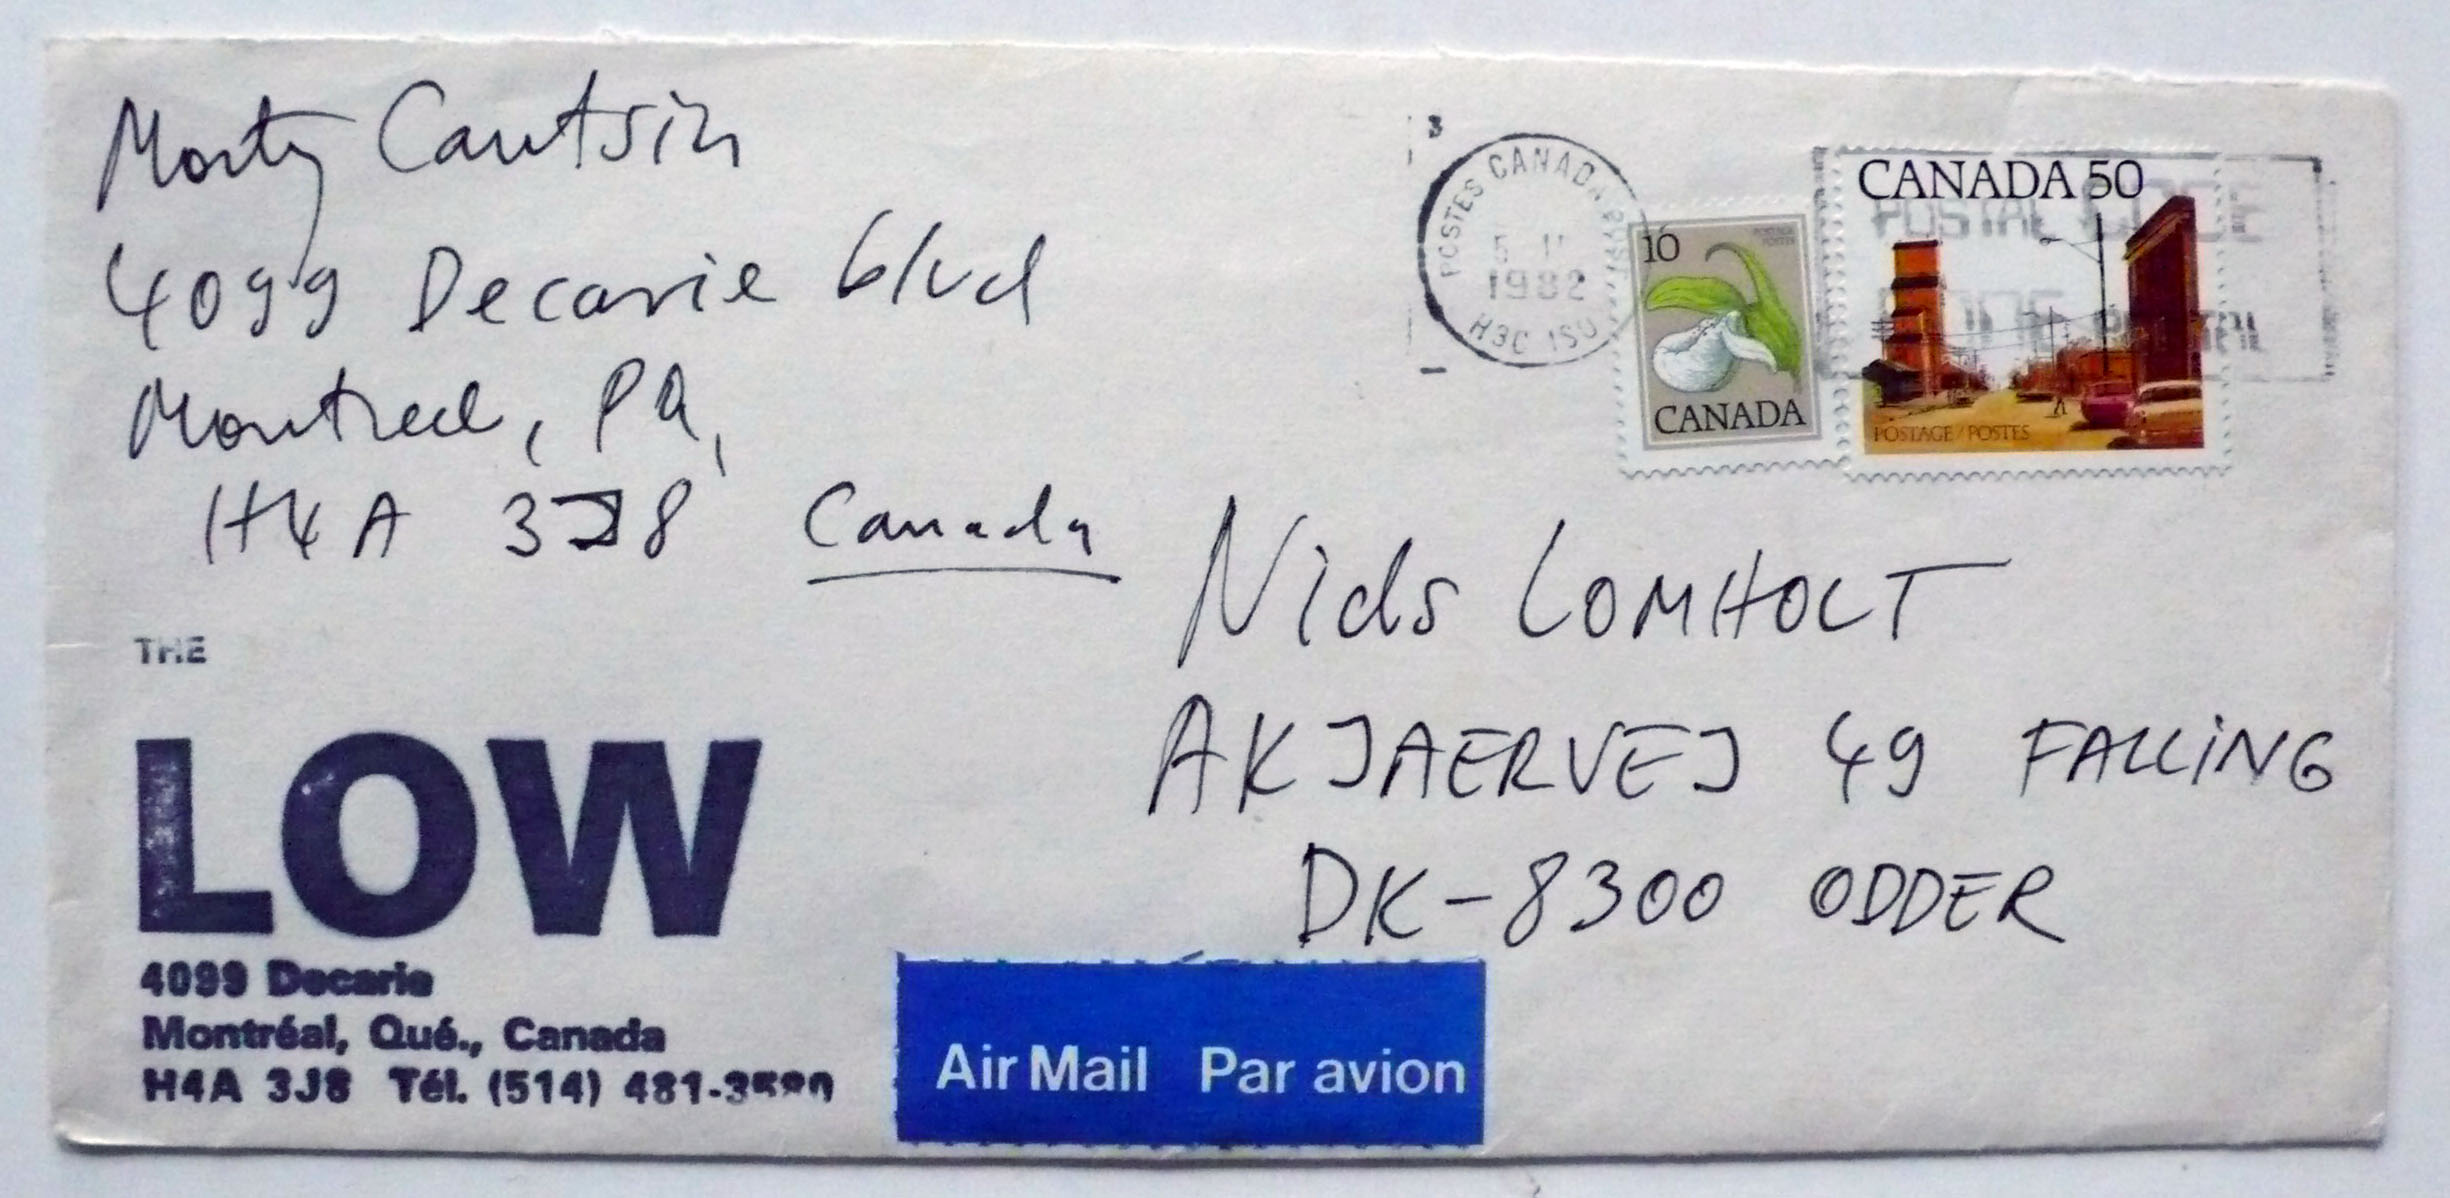 Monty Cantsin
4099 Decarie blvd
Montreal, PQ,
H4A 3J8 Canada
THE
LOW
4099 Decarie
Montréal, Qué., Canada
H4A 3J8 Tél. (514) 481-3580
3
POSTES CANADA
1982
H3C 1S0
10
POSTAGE
POSTES
CANADA
CANADA 50
POSTAGE / POSTES
POSTAL CODE
CODE POSTAL
Niels LOMHOLT
AKJAERVEJ 49 FALLING
DK-8300 ODDER
Air Mail Par avion